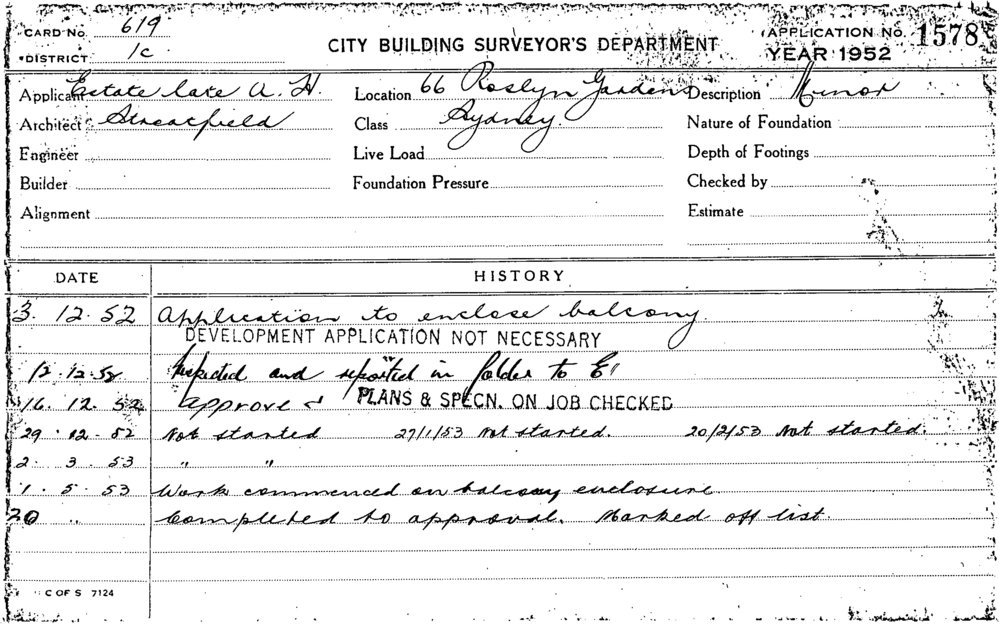 CARD No. 619
DISTRICT 1c
CITY BUILDING SURVEYOR'S DEPARTMENT
APPLICATION No. 1578
YEAR 1952
Applicant Estate late A. H. Location 66 Roslyn Gardens Description Minor
Architect Streatfield Class Sydney. Nature of Foundation
Engineer Live Load Depth of Footings
Builder Foundation Pressure Checked by
Alignment Estimate
DATE HISTORY
3. 12. 52 Application to enclose balcony.
DEVELOPMENT APPLICATION NOT NECESSARY
12.12.52 Inspected and reported in folder to
16. 12. 52 approved PLANS & SPECN. ON JOB CHECKED
29. 12. 52 Not started 27/1/53 Not started. 20/2/53 Not started.
2. 3. 53 " "
1. 5. 53 Work commenced on balcony enclosure
20 " Completed to approval. Marked off list.
C OF S 7124